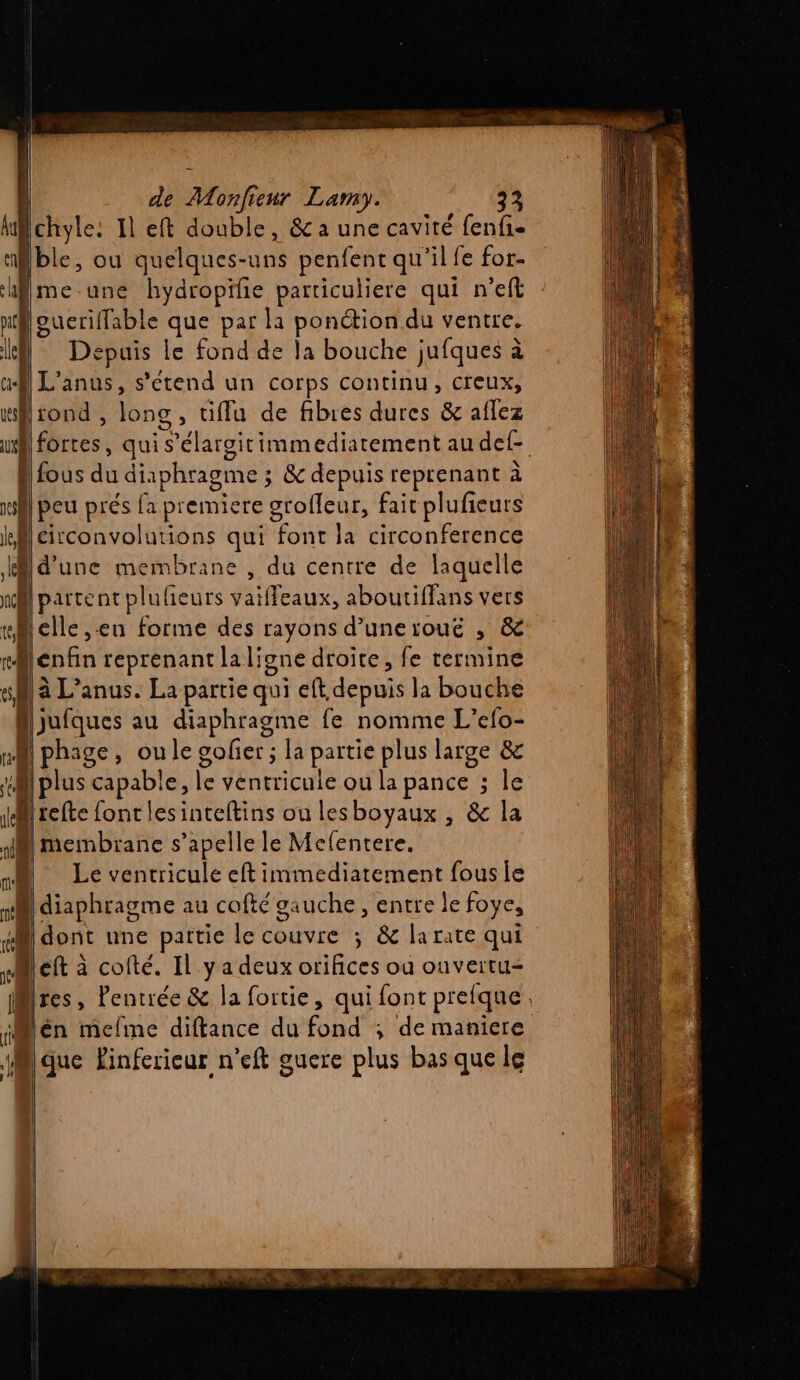 de Monſieur Lamy. 33
chyle: Il eſt double, & a une cavité ſenſi-
ble, ou quelques-uns penſent qu'il ſe for-
me une hydropiſie particuliere qui n'eſt
gueriſſable que par la ponction du ventre.
Depuis le fond de la bouche juſques à
L'anus, s'étend un corps continu, creux,
rond, long, tiſſu de fibres dures & aſſez
fortes, qui s'élargit immediatement au deſ-
ſous du diaphragme; & depuis reprenant à
peu prés ſa premiere groſſeur, fait pluſieurs
circonvolutions qui font la circonference
d'une membrane, du centre de laquelle
partent pluſieurs vaiſſeaux, aboutiſſans vers
elle, en forme des rayons d'une rouë, &
enfin reprenant la ligne droite, ſe termine
à L'anus. La partie qui eſt depuis la bouche
juſques au diaphragme ſe nomme L'eſo-
phage, ou le goſier; la partie plus large &
plus capable, le ventricule ou la pance; le
reſte ſont les inteſtins ou les boyaux, & la
membrane s'apelle le Meſentere.
Le ventricule eſt immediatement ſous le
diaphragme au coſté gauche, entre le foye,
dont une partie le couvre; & la rate qui
eſt à coſté. Il y a deux orifices ou ouvertu-
res, l'entrée & la ſortie, qui ſont preſque
én meſme diſtance du fond; de maniere
que l'inferieur n'eſt guere plus bas que le